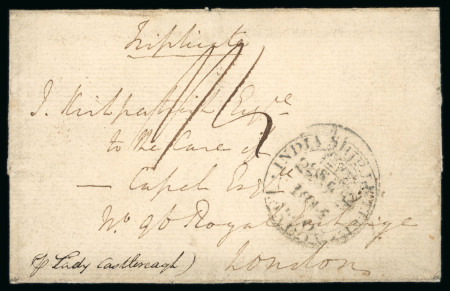 Triplicate
J. Kirkpatrick Esqre
to the Care of
— Capel Esqre
No. 96 Royal Exchange
London
p Lady Castlereagh)
INDIA SHIP LETTER